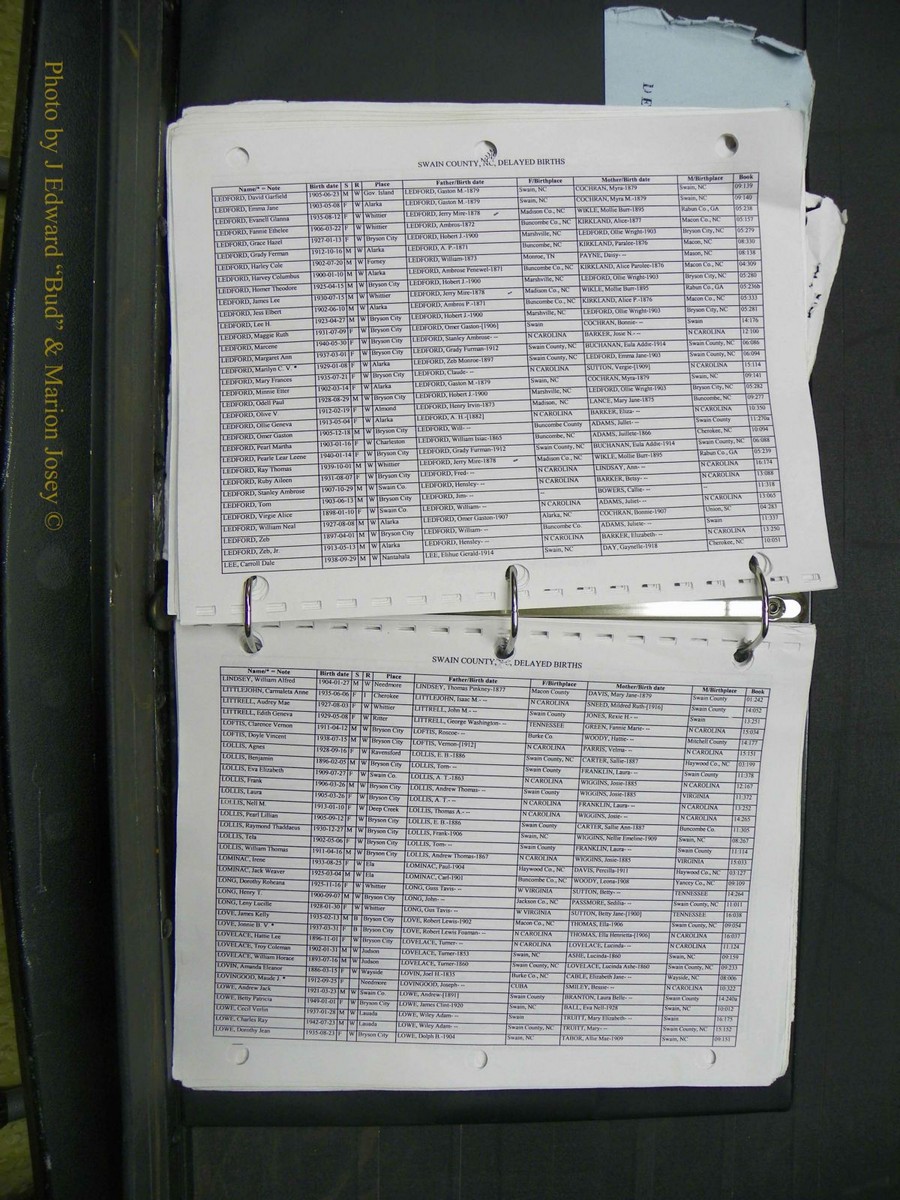 Photo by J Edward “Bud” & Marion Josey ©
DE
SWAIN COUNTY, NC, DELAYED BIRTHS
Name/* = Note Birth date S R Place Father/Birth date F/Birthplace Mother/Birth date M/Birthplace Book
LEDFORD, David Garfield 1905-06-23 M W Gov. Island LEDFORD, Gaston M.-1879 Swain, NC COCHRAN, Myra-1879 Swain, NC 09:139
LEDFORD, Emma Jane 1903-05-08 F W Alarka LEDFORD, Gaston M.-1879 Swain, NC COCHRAN, Myra M.-1879 Swain, NC 09:140
LEDFORD, Evanell Glanna 1935-08-12 F W Whittier LEDFORD, Jerry Mire-1878 Madison Co., NC WIKLE, Mollie Burr-1895 Rabun Co., GA 05:238
LEDFORD, Fannie Ethelee 1906-03-22 F W Whittier LEDFORD, Ambros-1872 Buncombe, NC KIRKLAND, Alice-1877 Macon Co, NC 05:157
LEDFORD, Grace Hazel 1927-01-13 F W Bryson City LEDFORD, Hobert J.-1900 Marshville, NC LEDFORD, Ollie Wright-1903 Bryson City, NC 05:279
LEDFORD, Grady Ferman 1912-10-16 M W Alarka LEDFORD, A. P.-1871 Buncombe, NC KIRKLAND, Paralee-1876 Macon, NC 08:330
LEDFORD, Harley Cole 1902-07-20 M W Forney LEDFORD, William-1873 Monroe, TN PAYNE, Daisy-- Macon, NC 08:158
LEDFORD, Harvey Columbus 1900-01-10 M W Alarka LEDFORD, Ambrose Penewel-1871 Buncombe Co., NC KIRKLAND, Alice Paralee-1876 Macon Co., NC 04:309
LEDFORD, Homer Theodore 1925-04-15 M W Bryson City LEDFORD, Hobert J.-1900 Marshville, NC LEDFORD, Ollie Wright-1903 Bryson City, NC 05:280
LEDFORD, James Lee 1930-07-15 M W Whittier LEDFORD, Jerry Mire-1878 Madison Co., NC WIKLE, Mollie Burr-1895 Rabun Co., GA 05:236b
LEDFORD, Jess Elbert 1902-06-10 M W Alarka LEDFORD, Ambros P.-1871 Buncombe Co., NC KIRKLAND, Alice P.-1876 Macon Co., NC 05:333
LEDFORD, Lee H. 1923-04-27 M W Bryson City LEDFORD, Hobert J.-1900 Marshville, NC LEDFORD, Ollie Wright-1903 Bryson City, NC 05:281
LEDFORD, Maggie Ruth 1931-07-09 F W Bryson City LEDFORD, Omer Gaston-[1906] Swain COCHRAN, Bonnie-- Swain 14:176
LEDFORD, Marcene 1940-05-30 F W Bryson City LEDFORD, Stanley Ambrose-- N CAROLINA BARKER, Josie N.-- N CAROLINA 12:100
LEDFORD, Margaret Ann 1937-03-01 F W Bryson City LEDFORD, Grady Furman-1912 Swain County, NC BUCHANAN, Eula Addie-1914 Swain County, NC 06:086
LEDFORD, Marilyn C. V. * 1929-01-08 F W Alarka LEDFORD, Zeb Monroe-1897 Swain County, NC LEDFORD, Emma Jane-1903 Swain County, NC 06:094
LEDFORD, Mary Frances 1935-07-21 F W Bryson City LEDFORD, Claude-- N CAROLINA SUTTON, Vergie-[1909] N CAROLINA 15:114
LEDFORD, Minnie Etter 1902-03-14 F W Alarka LEDFORD, Gaston M.-1879 Swain, NC COCHRAN, Myra-1879 Swain, NC 09:141
LEDFORD, Odell Paul 1928-08-29 M W Bryson City LEDFORD, Hobert J.-1900 Marshville, NC LEDFORD, Ollie Wright-1903 Bryson City, NC 05:282
LEDFORD, Olive V. 1912-02-19 F W Almond LEDFORD, Henry Irvin-1873 Madison, NC LANCE, Mary Jane-1875 Buncombe, NC 09:277
LEDFORD, Ollie Geneva 1913-05-04 F W Alarka LEDFORD, A. H.-[1882] N CAROLINA BARKER, Eliza-- N CAROLINA 10:350
LEDFORD, Omer Gaston 1905-12-18 M W Bryson City LEDFORD, Will-- Buncombe County ADAMS, Juliet-- Swain County 11:270a
LEDFORD, Pearl Martha 1903-01-16 F W Charleston LEDFORD, William Isaac-1865 Buncombe, NC ADAMS, Juliette-1866 Cherokee, NC 10:094
LEDFORD, Pearle Lear Leene 1940-01-14 F W Bryson City LEDFORD, Grady Furman-1912 Swain County, NC BUCHANAN, Eula Addie-1914 Swain County, NC 06:088
LEDFORD, Ray Thomas 1939-10-01 M W Whittier LEDFORD, Jerry Mire-1878 Madison Co., NC WIKLE, Mollie Burr-1895 Rabun Co., GA 05:239
LEDFORD, Ruby Aileen 1931-08-07 F W Bryson City LEDFORD, Fred-- N CAROLINA LINDSAY, Ann-- N CAROLINA 16:174
LEDFORD, Stanley Ambrose 1907-10-29 M W Swain Co. LEDFORD, Hensley-- N CAROLINA BARKER, Betsy-- N CAROLINA 13:088
LEDFORD, Tom 1903-06-13 M W Bryson City LEDFORD, Jim-- -- BOWERS, Callie-- -- 11:318
LEDFORD, Virgie Alice 1898-01-10 F W Swain Co. LEDFORD, William-- N CAROLINA ADAMS, Juliet-- N CAROLINA 13:065
LEDFORD, William Neal 1927-08-08 M W Alarka LEDFORD, Omer Gaston-1907 Alarka, NC COCHRAN, Bonnie-1907 Union, NC 04:283
LEDFORD, Zeb 1897-04-01 M W Bryson City LEDFORD, William-- Buncombe Co. ADAMS, Juliete-- Swain 11:337
LEDFORD, Zeb, Jr. 1913-05-13 M W Alarka LEDFORD, Hensley-- N CAROLINA BARKER, Elizabeth-- N CAROLINA 13:250
LEE, Carroll Dale 1938-09-29 M W Nantahala LEE, Elihue Gerald-1914 Swain, NC DAY, Gaynelle-1918 Cherokee, NC 10:051
SWAIN COUNTY, NC, DELAYED BIRTHS
Name/* = Note Birth date S R Place Father/Birth date F/Birthplace Mother/Birth date M/Birthplace Book
LINDSEY, William Alfred 1904-01-27 M W Needmore LINDSEY, Thomas Pinkney-1877 Macon County DAVIS, Mary Jane-1879 Swain County 01:242
LITTLEJOHN, Carmaleta Anne 1935-06-06 F I Cherokee LITTLEJOHN, Isaac M.-- N CAROLINA SNEED, Mildred Ruth-[1916] Swain County 14:052
LITTRELL, Audrey Mae 1927-08-03 F W Whittier LITTRELL, John M.-- Swain County JONES, Roxie H.-- Swain 13:251
LITTRELL, Edith Geneva 1929-05-08 F W Ritter LITTRELL, George Washington-- TENNESSEE GREEN, Fannie Marie-- N CAROLINA 15:034
LOFTIS, Clarence Vernon 1911-04-12 M W Bryson City LOFTIS, Roscoe-- Burke Co. WOODY, Hattie-- Mitchell County 14:177
LOFTIS, Doyle Vincent 1938-07-15 M W Bryson City LOFTIS, Vernon-[1912] N CAROLINA PARRIS, Velma-- N CAROLINA 15:151
LOLLIS, Agnes 1928-09-16 F W Ravensford LOLLIS, E. B.-1886 Swain County, NC CARTER, Sallie-1887 Haywood Co., NC 03:199
LOLLIS, Benjamin 1896-02-05 M W Bryson City LOLLIS, Tom-- Swain County FRANKLIN, Laura-- Swain County 11:378
LOLLIS, Eva Elizabeth 1909-07-27 F W Swain Co. LOLLIS, A. T.-1863 N CAROLINA WIGGINS, Josie-1885 N CAROLINA 12:167
LOLLIS, Frank 1906-03-26 M W Bryson City LOLLIS, Andrew Thomas-- Swain County WIGGINS, Josie-1885 VIRGINIA 11:372
LOLLIS, Laura 1905-03-26 F W Bryson City LOLLIS, A. T.-- N CAROLINA FRANKLIN, Laura-- N CAROLINA 13:252
LOLLIS, Nell M. 1913-01-10 F W Deep Creek LOLLIS, Thomas A.-- N CAROLINA WIGGINS, Josie-- N CAROLINA 14:265
LOLLIS, Pearl Lillian 1905-09-12 F W Bryson City LOLLIS, E. B.-1886 Swain County CARTER, Sallie Ann-1887 Buncombe Co. 11:305
LOLLIS, Raymond Thaddaeus 1930-12-27 M W Bryson City LOLLIS, Frank-1906 Swain, NC WIGGINS, Nellie Emeline-1909 Swain, NC 08:267
LOLLIS, Tela 1902-05-06 F W Bryson City LOLLIS, Tom-- Swain County FRANKLIN, Laura-- Swain County 11:114
LOLLIS, William Thomas 1911-04-16 M W Bryson City LOLLIS, Andrew Thomas-1867 N CAROLINA WIGGINS, Josie-1885 VIRGINIA 15:033
LOMINAC, Irene 1933-08-25 F W Ela LOMINAC, Paul-1904 Haywood Co., NC DAVIS, Percilla-1911 Haywood Co., NC 03:127
LOMINAC, Jack Weaver 1925-03-04 M W Ela LOMINAC, Carl-1901 Buncombe Co., NC WOODY, Leona-1908 Yancey Co., NC 09:109
LONG, Dorothy Robeana 1925-11-16 F W Whittier LONG, Guss Tavis-- W VIRGINIA SUTTON, Betty-- TENNESSEE 14:264
LONG, Henry T. 1900-09-07 M W Bryson City LONG, John-- Jackson Co., NC PASSMORE, Sedilia-- Swain County, NC 11:011
LONG, Leny Lucille 1928-01-30 F W Whittier LONG, Gus Tavis-- W VIRGINIA SUTTON, Betty Jane-[1900] TENNESSEE 16:038
LOVE, James Kelly 1935-02-13 M B Bryson City LOVE, Robert Lewis-1902 Macon Co., NC THOMAS, Ella-1906 Swain County, NC 09:054
LOVE, Jonnie B. V. * 1937-03-31 F B Bryson City LOVE, Robert Lewis Foaman-- N CAROLINA THOMAS, Ella Henrietta-[1906] N CAROLINA 16:037
LOVELACE, Hattie Lee 1896-11-01 F W Bryson City LOVELACE, Turner-- N CAROLINA LOVELACE, Lucinda-- N CAROLINA 11:124
LOVELACE, Troy Coleman 1902-01-31 M W Judson LOVELACE, Turner-1853 Swain, NC ASHE, Lucinda-1860 Swain, NC 09:159
LOVELACE, William Horace 1893-07-16 M W Judson LOVELACE, Turner-1860 Swain County, NC LOVELACE, Lucinda Ashe-1860 Swain County, NC 09:233
LOVIN, Amanda Eleanor 1886-03-15 F W Wayside LOVIN, Joel H.-1835 Burke Co., NC CABLE, Elizabeth Jane-- Wayside, NC 08:006
LOVINGOOD, Maude J. * 1912-09-25 F Needmore LOVINGOOD, Joseph-- CUBA SMILEY, Bessie-- N CAROLINA 10:322
LOWE, Andrew Jack 1921-03-23 M W Swain Co. LOWE, Andrew-[1891] Swain County BRANTON, Laura Belle-- Swain County 14:240a
LOWE, Betty Patricia 1949-01-01 F W Bryson City LOWE, James Clint-1920 Swain, NC BALL, Eva Nell-1928 Swain, NC 10:012
LOWE, Cecil Verlin 1937-01-28 M W Lauada LOWE, Wiley Adam-- Swain TRUITT, Mary Elizabeth-- Swain 16:175
LOWE, Charles Ray 1942-07-23 M W Lauada LOWE, Wiley Adam-- Swain County, NC TRUITT, Mary-- Swain County, NC 15:152
LOWE, Dorothy Jean 1935-08-23 F W Bryson City LOWE, Dolph B.-1904 Swain, NC TABOR, Allie Mae-1909 Swain, NC 09:151